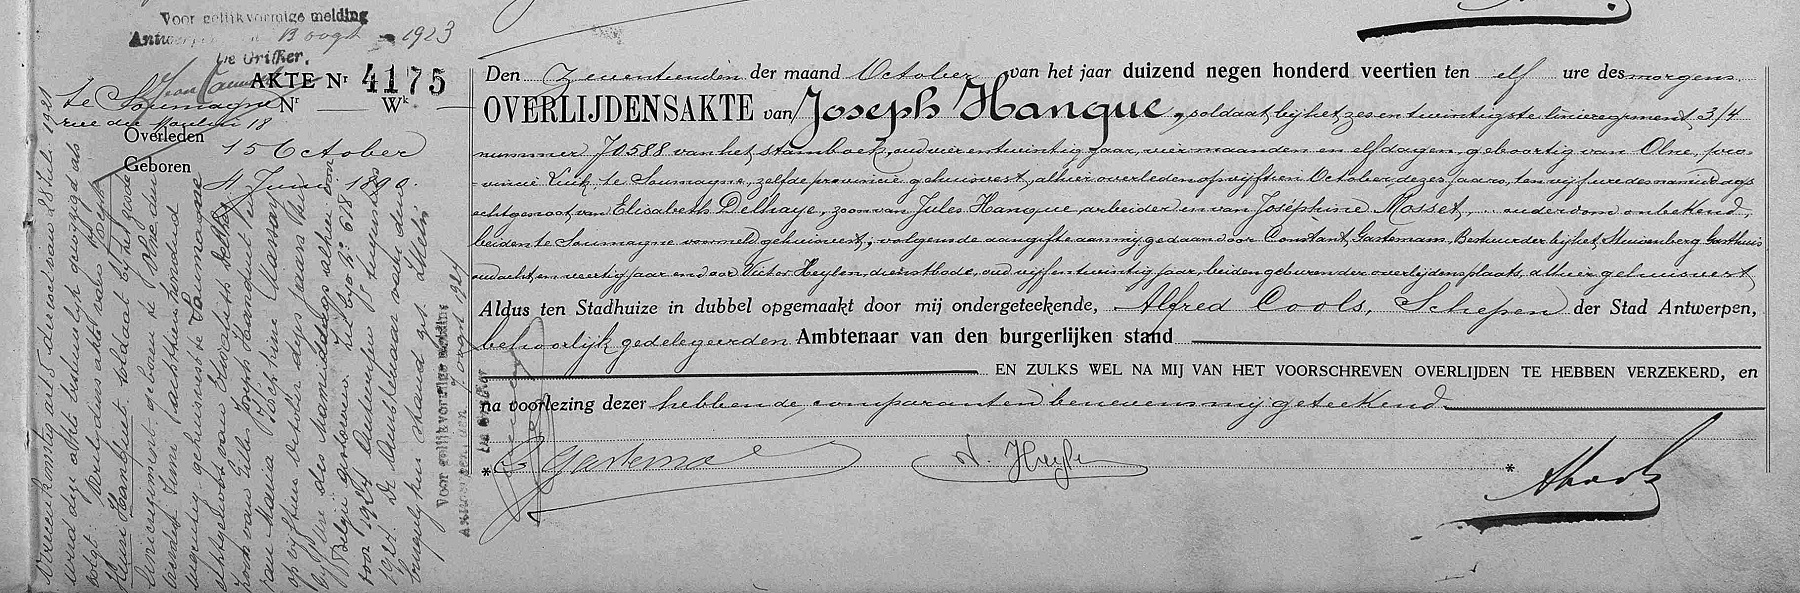 Voor gelijkvormige melding
Antwerpen 13 oogst 1923
De Griffier,
AKTE Nr 4175
te Soumagne
Nr — Wk —
rue du Moulin 18
Overleden
15 October
Geboren
4 Juni 1890.
Den Zeventienden der maand October van het jaar duizend negen honderd veertien ten elf ure des morgens
OVERLIJDENSAKTE van Joseph Hanque, soldaat bij het zesentwintigste linieregiment 3/4
nummer 70588 van het stamboek, oud vierentwintig jaar, vier maanden en elf dagen, geboortig van Olne, pro-
-vincie Luik, te Soumagne, zelfde provincie gehuisvest, alhier overleden op vijftien October dezes jaars, ten vijf ure des namiddags
echtgenoot van Elisabeth Delhaye, zoon van Jules Hanque, arbeider en van Joséphine Mosset, ouderdom onbekend,
beiden te Soumagne voormeld gehuisvest; volgens de aangifte aan mij gedaan door Constant Gastemans, Bestuurder bij het Stuivenberg Gasthuis
oud achtenveertig jaar en door Victor Heylen, dienstbode, oud vijfentwintig jaar, beiden geburen der overlijdensplaats, alhier gehuisvest
Aldus ten Stadhuize in dubbel opgemaakt door mij ondergeteekende, Alfred Cools, Schepen der Stad Antwerpen,
behoorlijk gedelegeerden Ambtenaar van den burgerlijken stand
EN ZULKS WEL NA MIJ VAN HET VOORSCHREVEN OVERLIJDEN TE HEBBEN VERZEKERD, en
na voorlezing dezer hebben de comparanten benevens mij geteekend
* C Gastemans V. Heylen * A Cools
Overeenkomstig art 5 der wet van 28 Juli 1921
werd deze akte bestuurlijk gewijzigd als
volgt: Overlijdensakte van
Henri Haanfeut soldaat bij het 
linieregiment geboren te Olne den
vierden Juni achttienhonderd
negentig gehuisvest te Soumagne
echtgenoot van Elisabeth
zoon van Gilles Joseph Haanfeut en
van Maria Joséphine Massart
op vijftien October dezes jaars ten
vijf ure des namiddags alhier voor
België gestorven. Zie Bijv. N° 618
voor 1924 Antwerpen 18 Augustus
1924. De Ambtenaar van den
burgerlijken stand get. Strelin
Voor gelijkvormige melding
Antwerpen den 7 oogst 1924
De Griffier